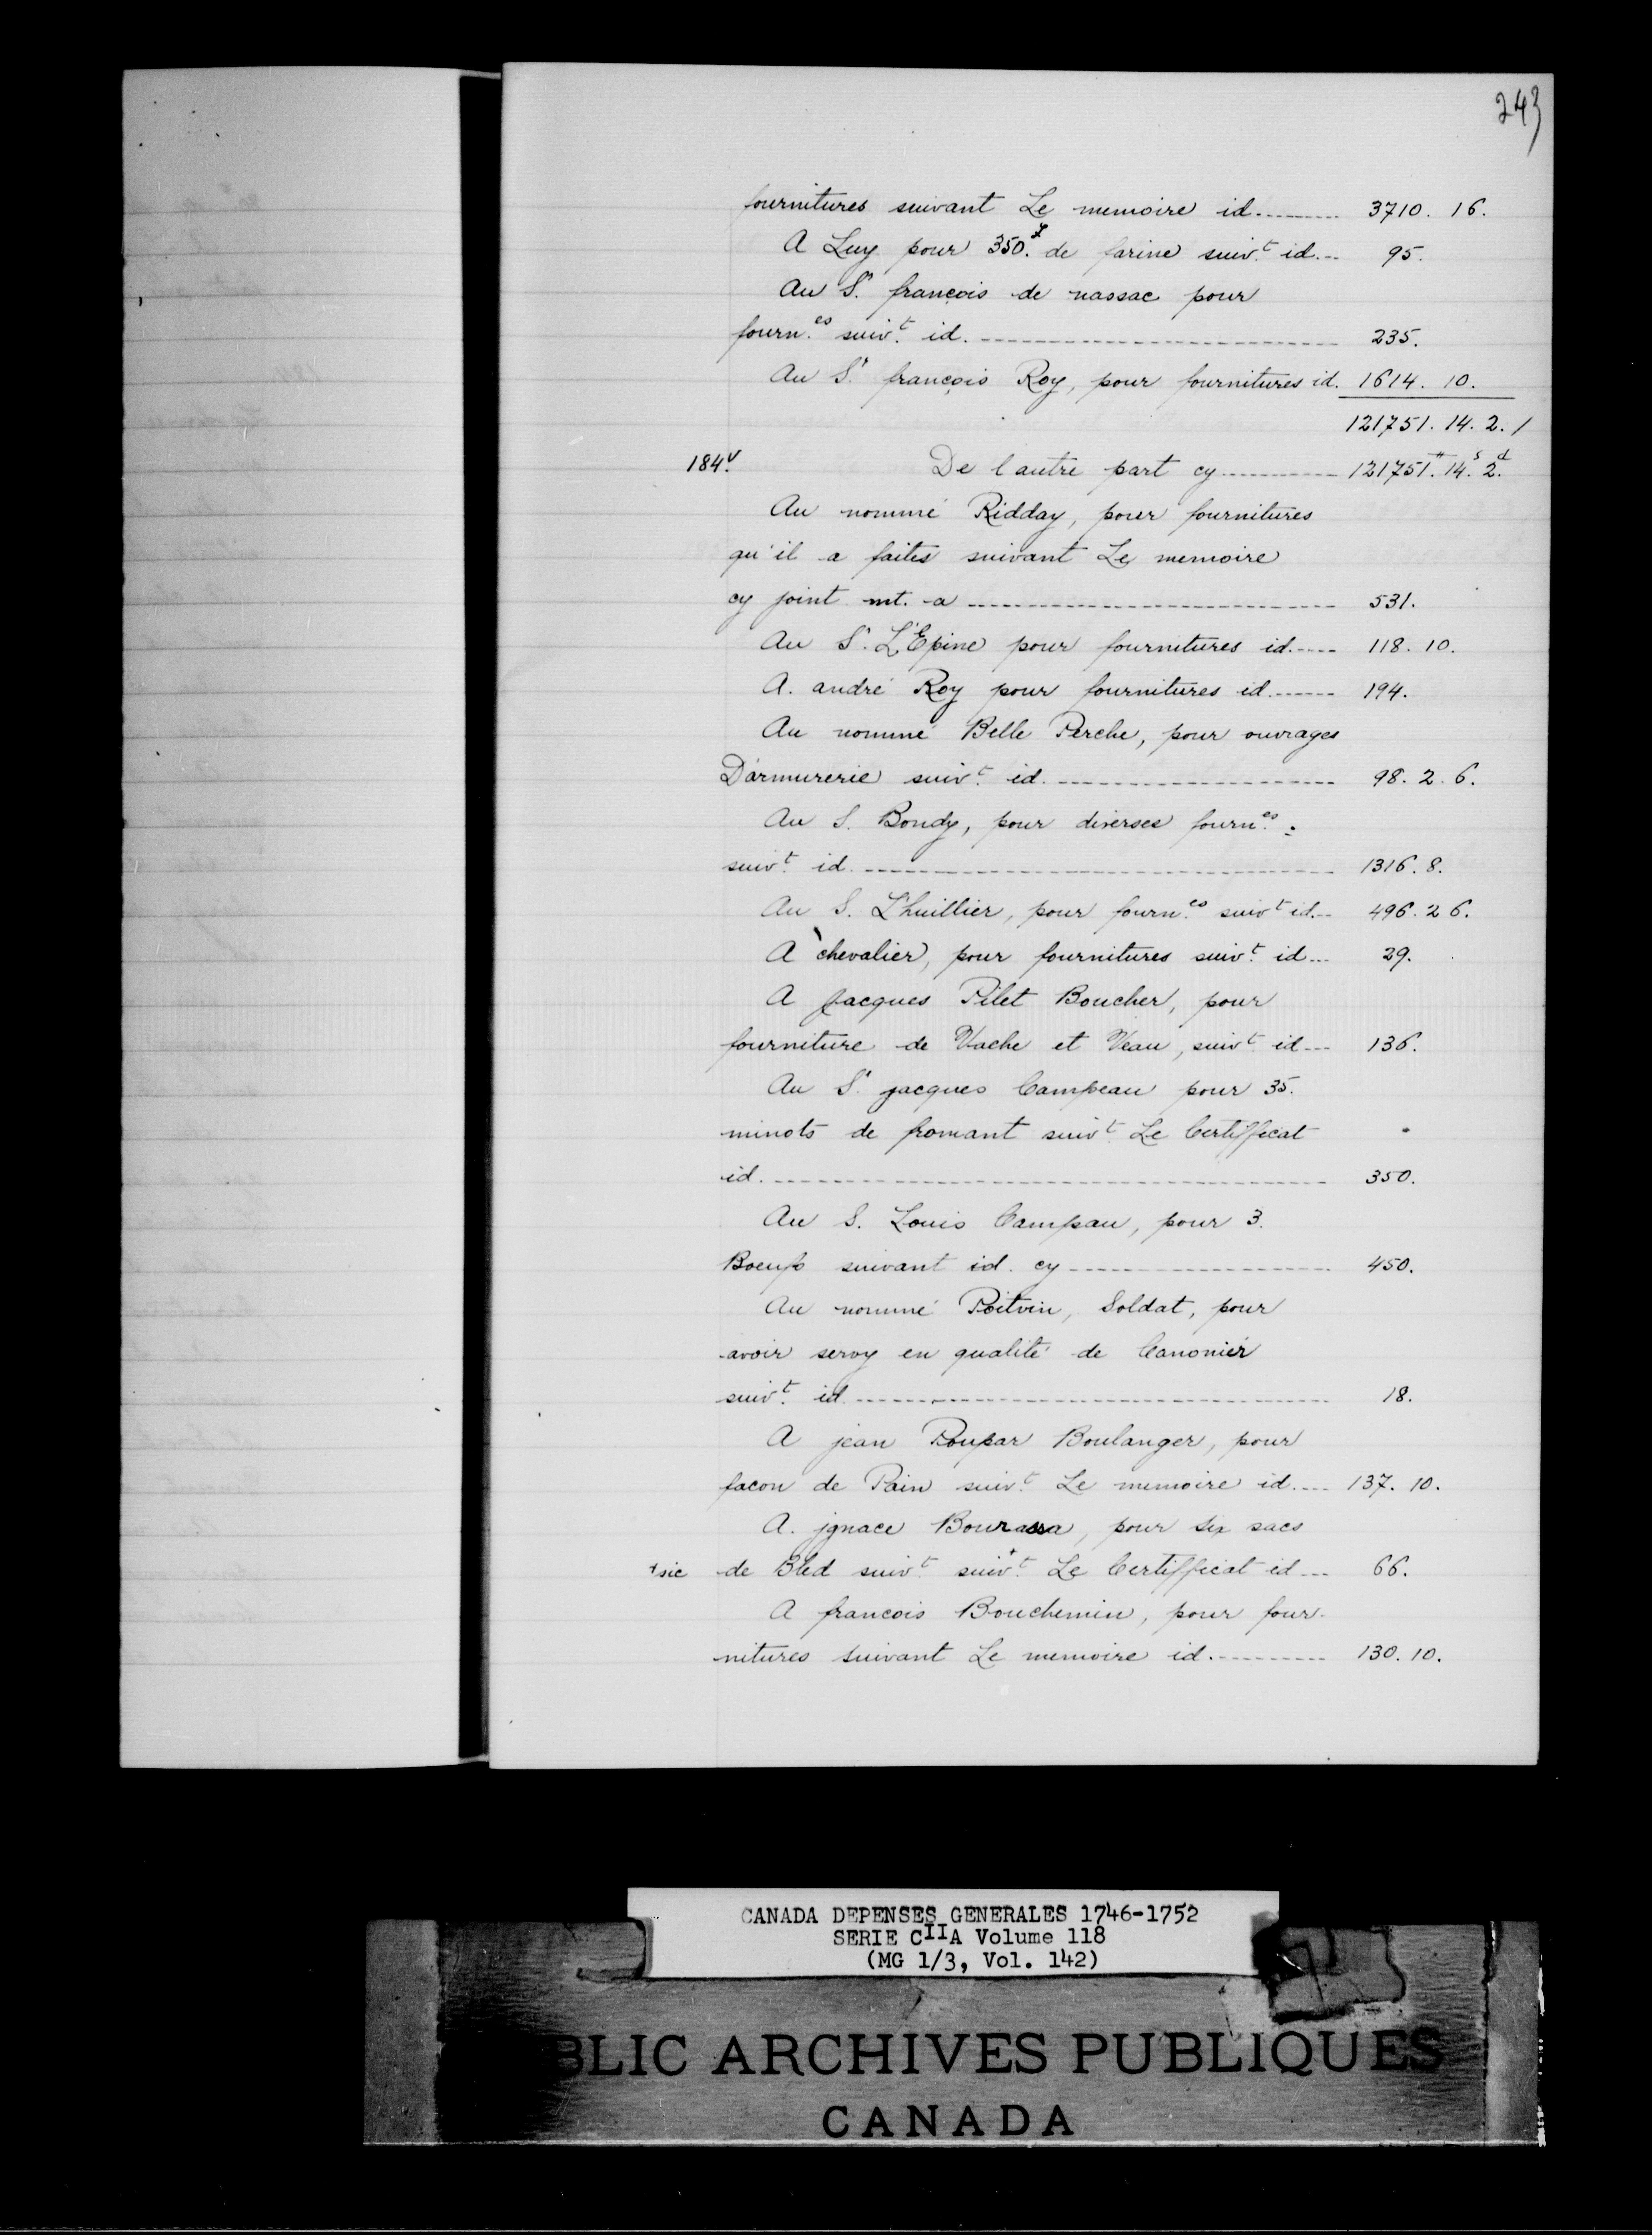 243
fournitures suivant Le memoire id......... 3710. 16.
A Luy pour 350.# de farine suiv.t id... 95.
Au S.r françois de nassac pour
fourn.es suiv.t id. ---------- 235.
Au S.r françois Roy, pour fournitures id. 1614. 10.
121751. 14. 2. /
184.v De l'autre part cy ---------- 121751.# 14.s 2.d
Au nommé Ridday, pour fournitures
qu'il a faites suivant Le memoire
cy joint mt. a ---------- 531.
Au S.r L'Epine pour fournitures id..... 118. 10.
A. andré Roy pour fournitures id...... 194.
Au nommé Belle Perche, pour ouvrages
D'armurerie suiv.t id. ---------- 98. 2. 6.
Au S. Bondy, pour diverses fourn.es :
suiv.t id. ---------- 1316. 8.
Au S. L'huillier, pour fourn.es suiv.t id... 496. 2 6.
A chevalier, pour fournitures suiv.t id... 29.
A Jacques Pilet Boucher, pour
fourniture de Vache et Veau, suiv.t id... 136.
Au S.r jacques Campeau pour 35.
minots de fromant suiv.t Le Certifficat
id. ---------- 350.
Au S. Louis Campau, pour 3.
Boeufs suivant id. cy ---------- 450.
Au nommé Poitvin, Soldat, pour
avoir servy en qualité de Canonier
suiv.t id. ---------- 18.
A jean Poupar Boulanger, pour
facon de Pain suiv.t Le memoire id.... 137. 10.
A. jgnace Bourassa, pour six sacs
+sic de Bled suiv.t suiv.+t Le Certifficat id... 66.
A francois Bouchemin, pour four-
nitures suivant Le memoire id. ---------- 130. 10.
CANADA DEPENSES GENERALES 1746-1752
SERIE CIIA Volume 118
(MG 1/3, Vol. 142)
BLIC ARCHIVES PUBLIQUES
CANADA